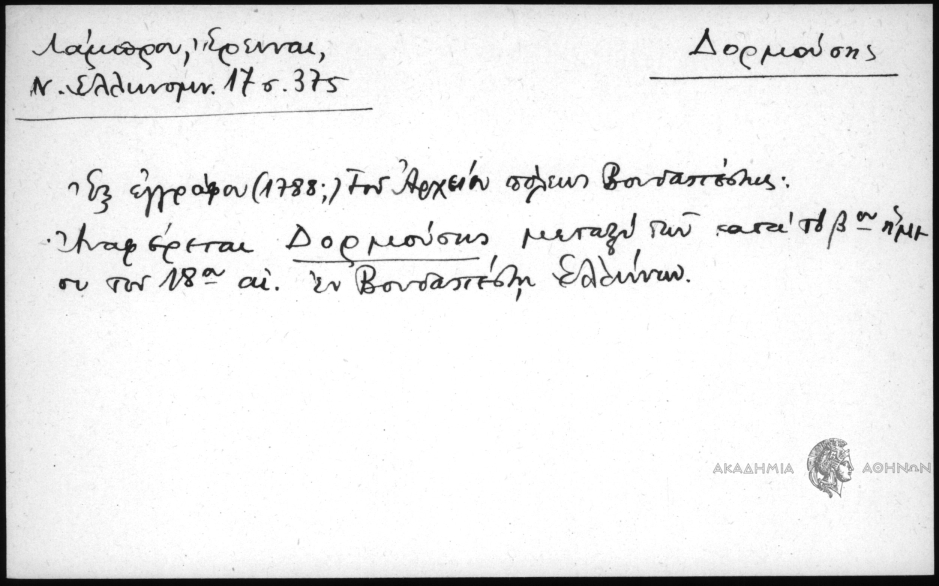 Λάμπρου, Ἔρευναι,
Ν. Ἑλληνομν. 17 σ. 375
Δορμούσης
Ἐξ ἐγγράφου (1788;) τοῦ Ἀρχείου πόλεως Βουδαπέστης:
Ἀναφέρεται Δορμούσης μεταξὺ τῶν κατὰ τὸ βον ἥμι-
συ τοῦ 18ου αἰ. ἐν Βουδαπέστῃ Ἑλλήνων.
ΑΚΑΔΗΜΙΑ ΑΘΗΝΩΝ